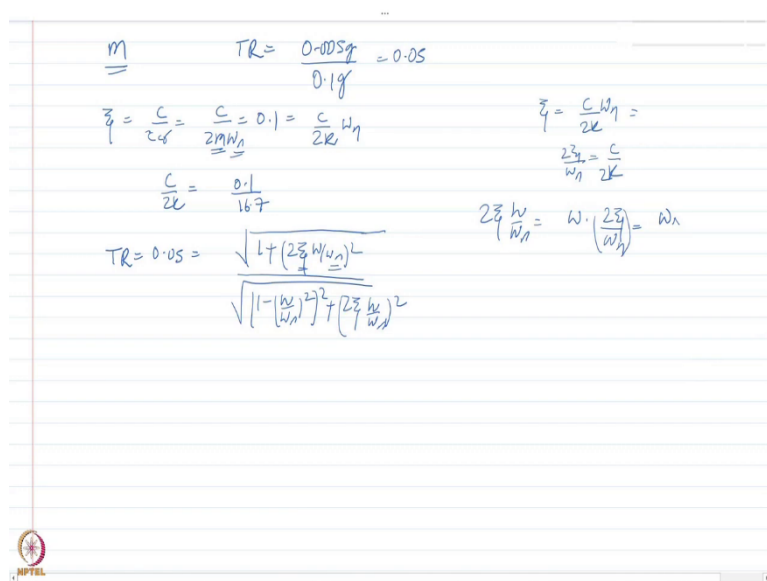 m TR = 0.005g / 0.1g = 0.05
ξ = c/cc = c/2mωn = 0.1 = c/2k ωn
c/2k = 0.1/16.7
TR = 0.05 = √(1+(2ξ ω/ωn)²) / √([1-(ω/ωn)²]²+(2ξ ω/ωn)²)
ξ = c/2k ωn =
2ξ/ωn = c/2k
2ξ ω/ωn = ω·(2ξ/ωn) = ω
NPTEL